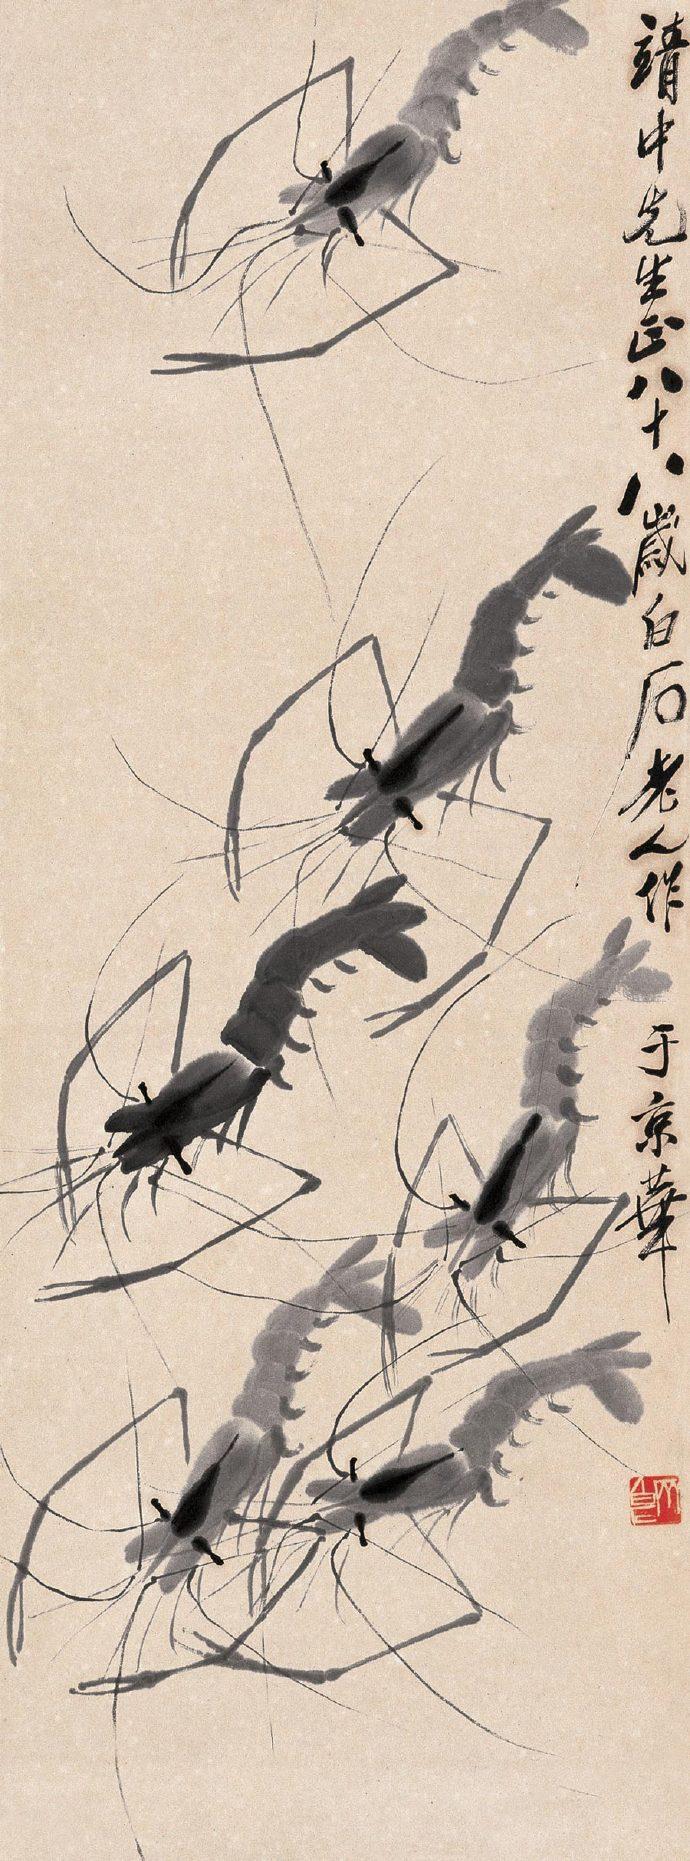 靖中先生正八十八歲白石老人作
于京華